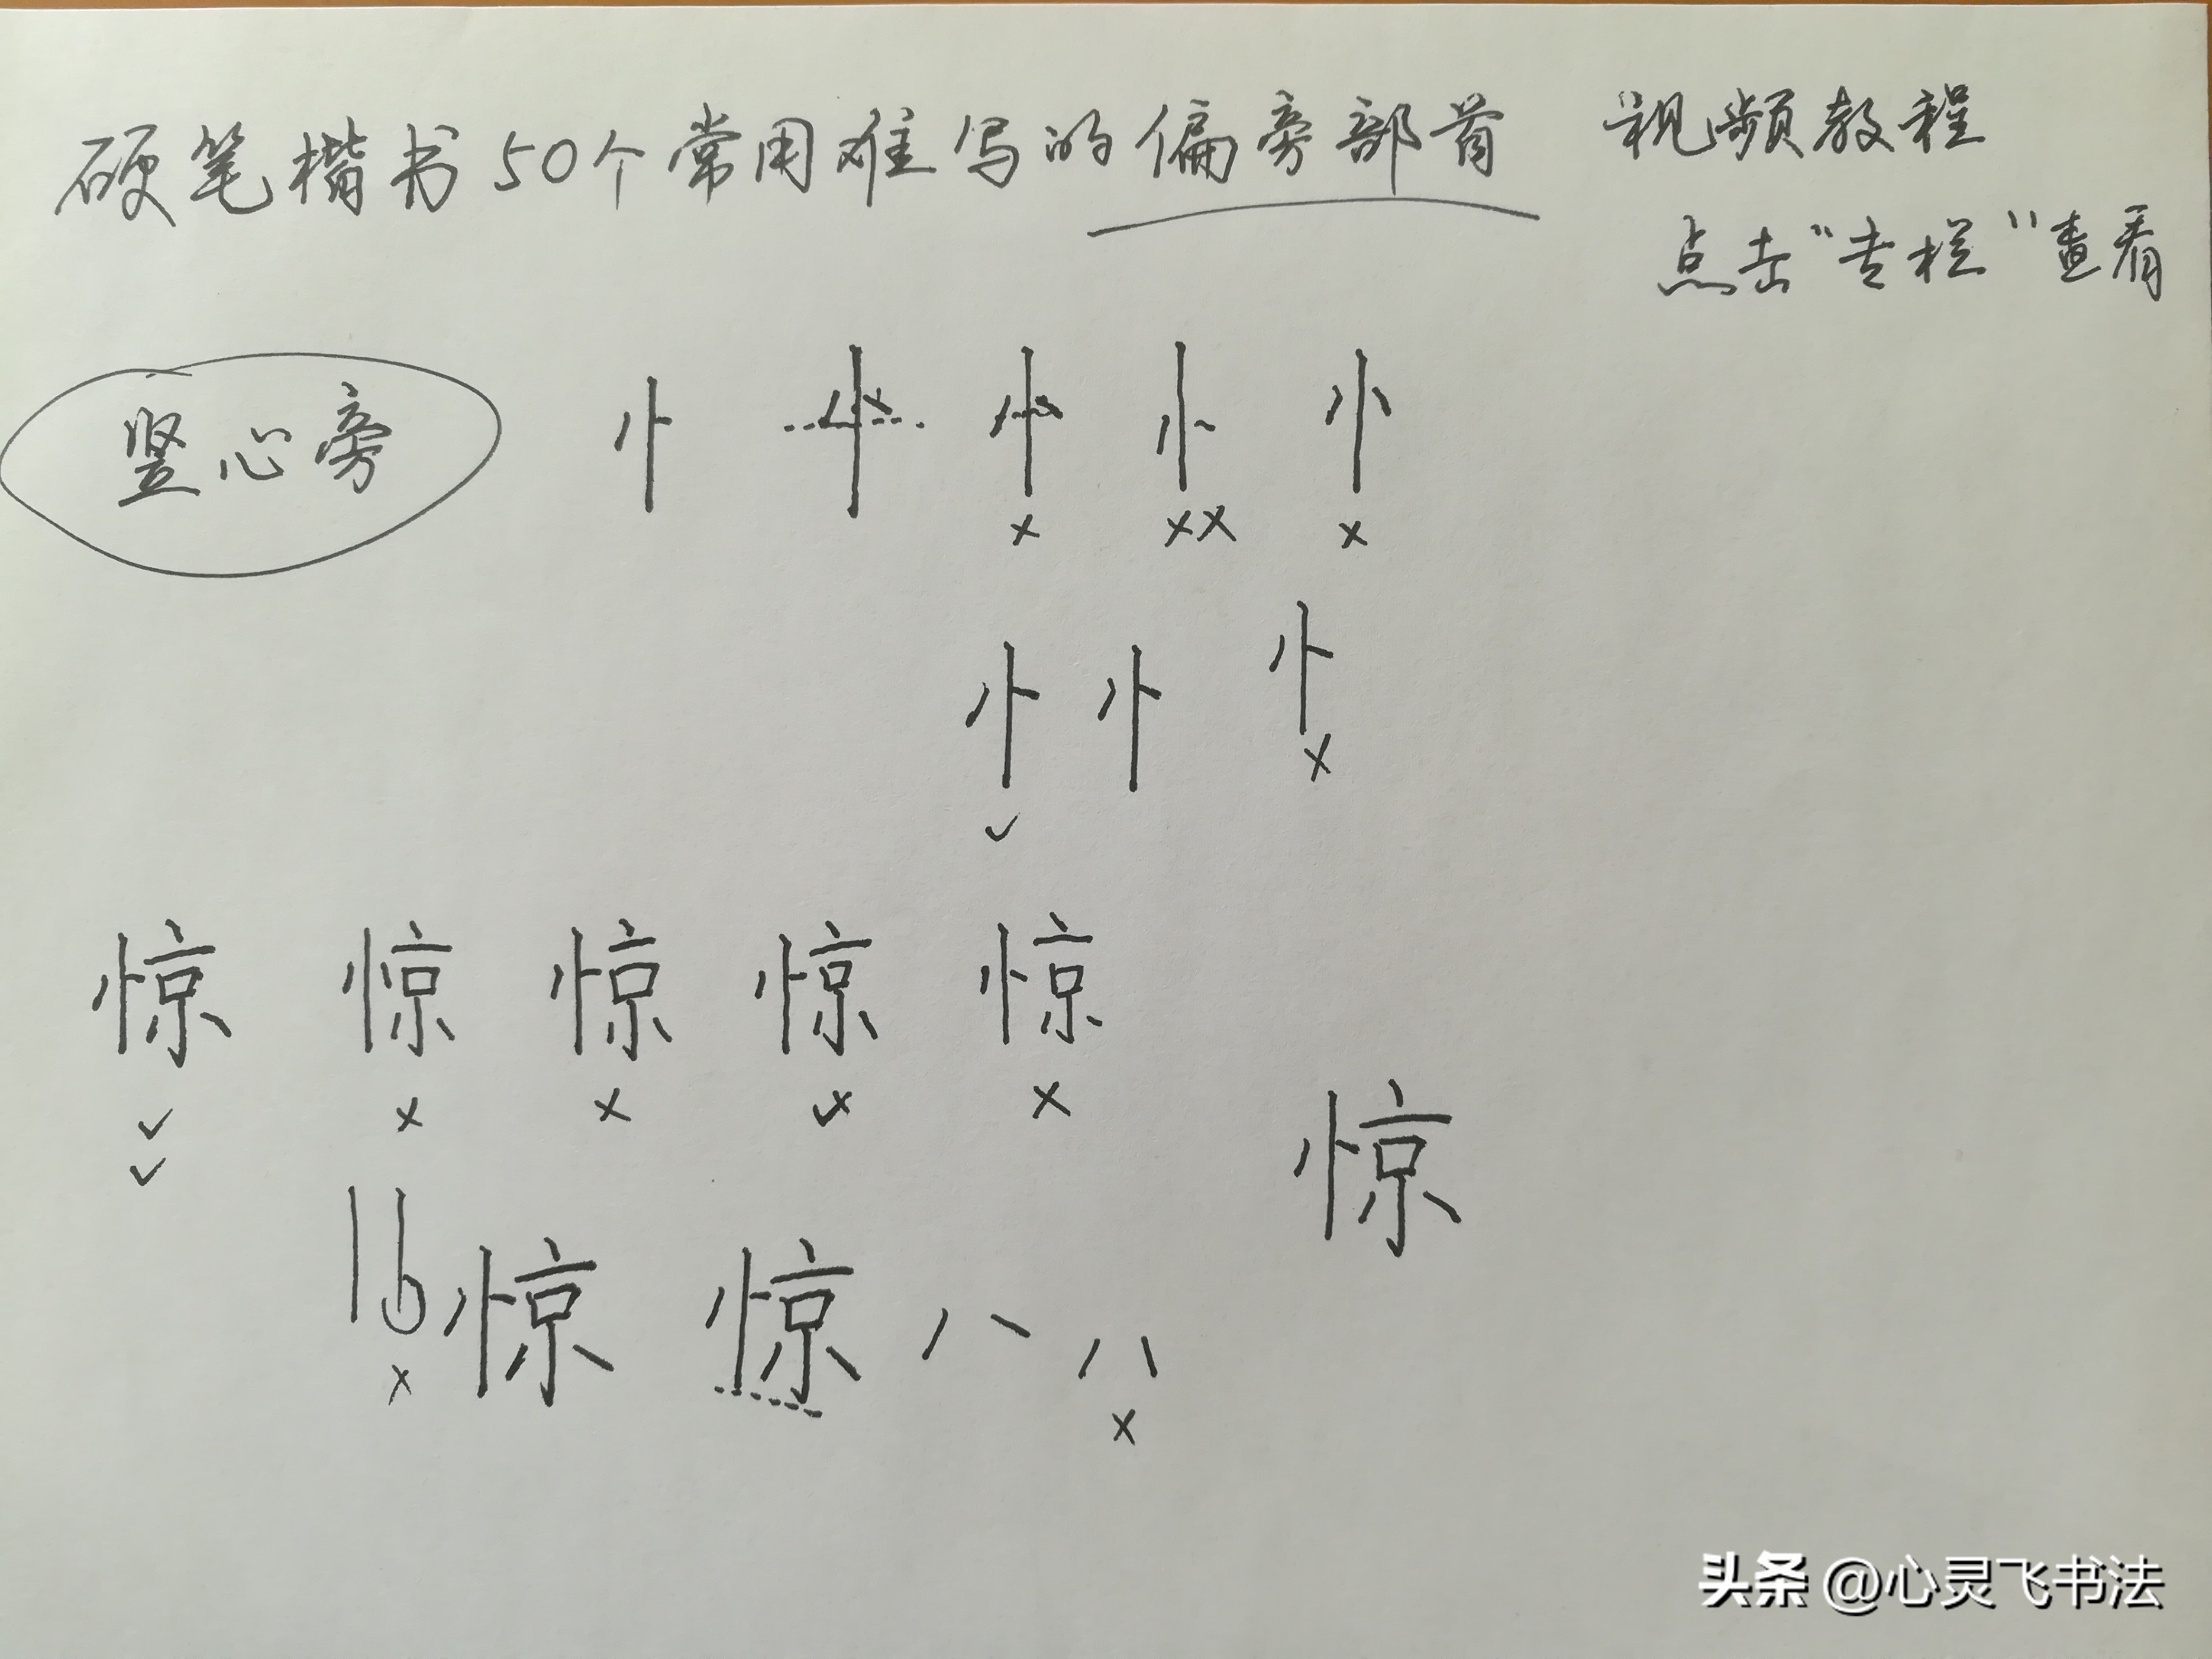 硬笔楷书50个常用难写的偏旁部首 视频教程
点击"专栏"查看
竖心旁 忄 忄 忄 忄 忄
× ×× ×
忄 忄 忄
✓ ×
惊 惊 惊 惊 惊
✓ × × × ×
✓
惊
惊 惊 八 八
× ×
头条 @心灵飞书法